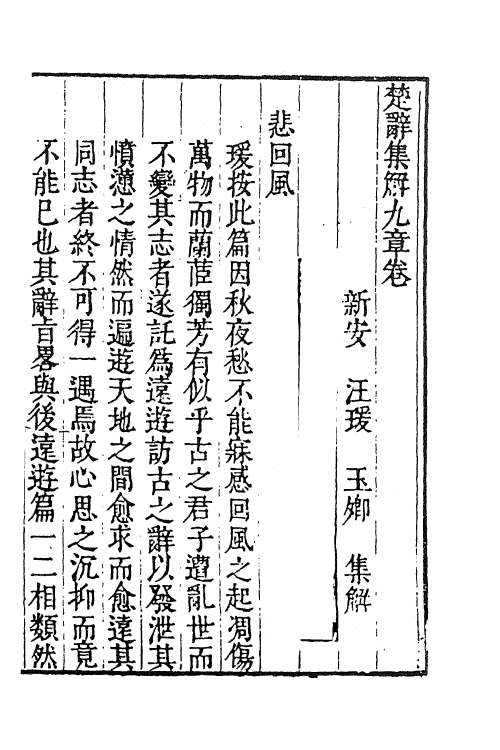 楚辭集解九章卷
新安 汪瑗 玉卿 集解
悲回風
瑗按此篇因秋夜愁不能寐感回風之起凋傷
萬物而蘭茝獨芳有似乎古之君子遭亂世而
不變其志者遂託爲遠遊訪古之辭以發泄其
憤懣之情然而遍遊天地之間愈求而愈遠其
同志者終不可得一遇焉故心思之沉抑而竟
不能已也其辭旨畧與後遠遊篇一二相類然